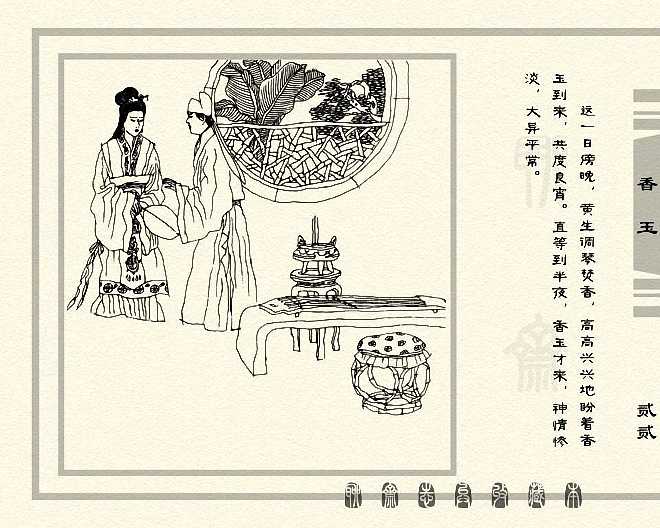 这一日傍晚，黄生调琴焚香，高高兴兴地盼着香
玉到来，共度良宵。直等到半夜，香玉才来，神情惨
淡，大异平常。
香玉
贰贰
聊斋志异收藏本